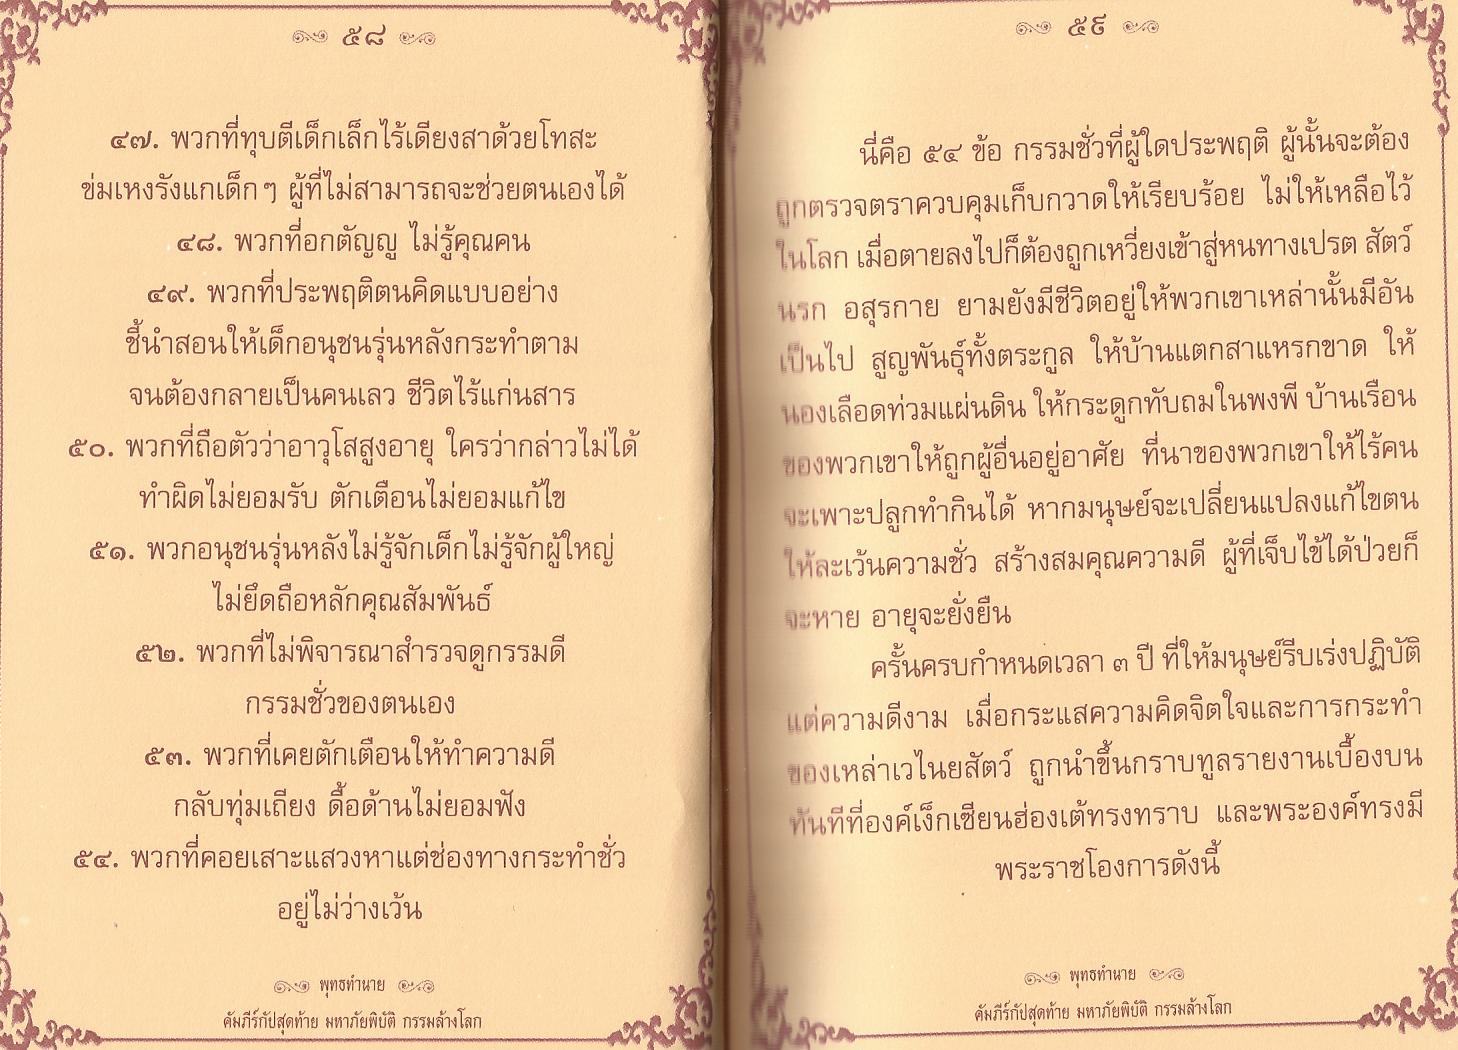 ๕๘
๔๗. พวกที่ทุบตีเด็กเล็กไร้เดียงสาด้วยโทสะ
ข่มเหงรังแกเด็กๆ ผู้ที่ไม่สามารถจะช่วยตนเองได้
๔๘. พวกที่อกตัญญู ไม่รู้คุณคน
๔๙. พวกที่ประพฤติตนคิดแบบอย่าง
ชี้นำสอนให้เด็กอนุชนรุ่นหลังกระทำตาม
จนต้องกลายเป็นคนเลว ชีวิตไร้แก่นสาร
๕๐. พวกที่ถือตัวว่าอาวุโสสูงอายุ ใครว่ากล่าวไม่ได้
ทำผิดไม่ยอมรับ ตักเตือนไม่ยอมแก้ไข
๕๑. พวกอนุชนรุ่นหลังไม่รู้จักเด็กไม่รู้จักผู้ใหญ่
ไม่ยึดถือหลักคุณสัมพันธ์
๕๒. พวกที่ไม่พิจารณาสำรวจดูกรรมดี
กรรมชั่วของตนเอง
๕๓. พวกที่เคยตักเตือนให้ทำความดี
กลับทุ่มเถียง ดื้อด้านไม่ยอมฟัง
๕๔. พวกที่คอยเสาะแสวงหาแต่ช่องทางกระทำชั่ว
อยู่ไม่ว่างเว้น
พุทธทำนาย
คัมภีร์กัปสุดท้าย มหาภัยพิบัติ กรรมล้างโลก
๕๙
นี่คือ ๕๔ ข้อ กรรมชั่วที่ผู้ใดประพฤติ ผู้นั้นจะต้อง
ถูกตรวจตราควบคุมเก็บกวาดให้เรียบร้อย ไม่ให้เหลือไว้
ในโลก เมื่อตายลงไปก็ต้องถูกเหวี่ยงเข้าสู่หนทางเปรต สัตว์
นรก อสุรกาย ยามยังมีชีวิตอยู่ให้พวกเขาเหล่านั้นมีอัน
เป็นไป สูญพันธุ์ทั้งตระกูล ให้บ้านแตกสาแหรกขาด ให้
นองเลือดท่วมแผ่นดิน ให้กระดูกทับถมในพงพี บ้านเรือน
ของพวกเขาให้ถูกผู้อื่นอยู่อาศัย ที่นาของพวกเขาให้ไร้คน
จะเพาะปลูกทำกินได้ หากมนุษย์จะเปลี่ยนแปลงแก้ไขตน
ให้ละเว้นความชั่ว สร้างสมคุณความดี ผู้ที่เจ็บไข้ได้ป่วยก็
จะหาย อายุจะยั่งยืน
ครั้นครบกำหนดเวลา ๓ ปี ที่ให้มนุษย์รีบเร่งปฏิบัติ
แต่ความดีงาม เมื่อกระแสความคิดจิตใจและการกระทำ
ของเหล่าเวไนยสัตว์ ถูกนำขึ้นกราบทูลรายงานเบื้องบน
ทันทีที่องค์เง็กเซียนฮ่องเต้ทรงทราบ และพระองค์ทรงมี
พระราชโองการดังนี้
พุทธทำนาย
คัมภีร์กัปสุดท้าย มหาภัยพิบัติ กรรมล้างโลก